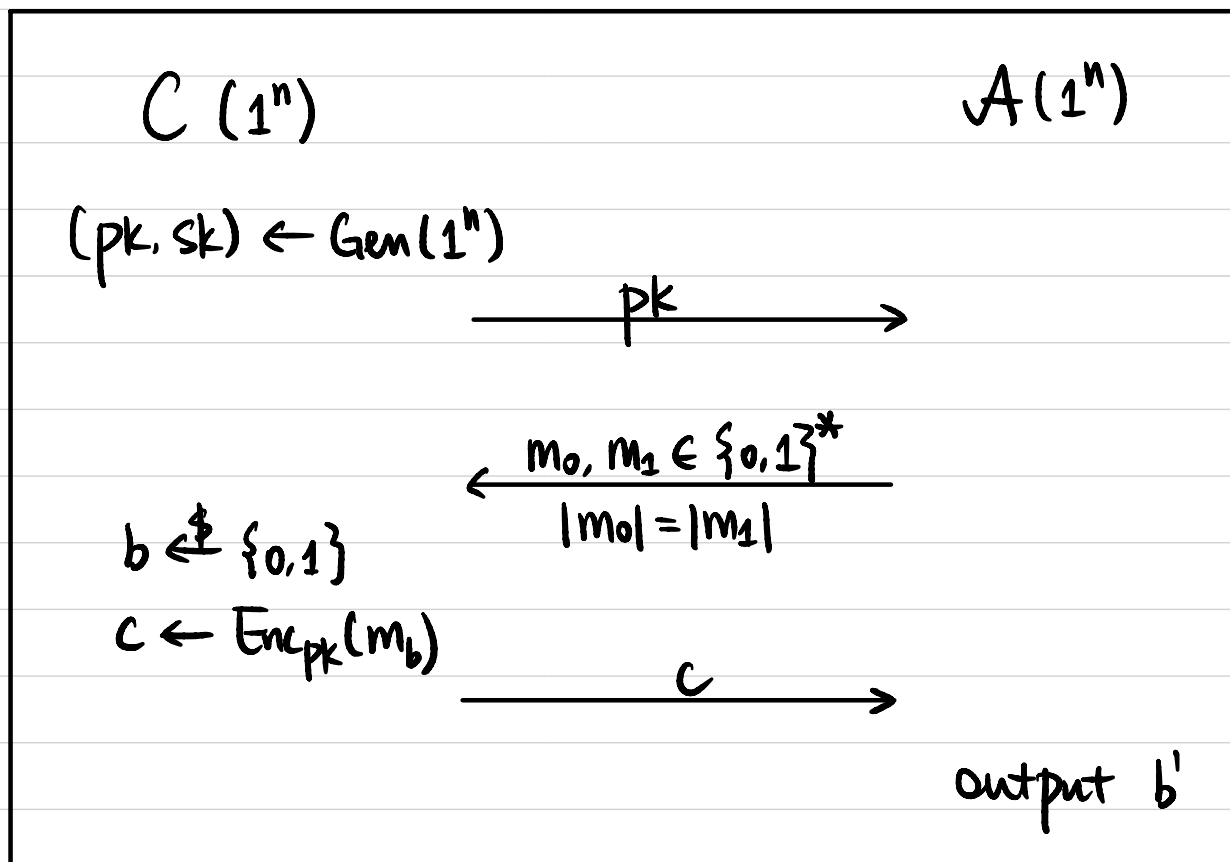 C (1ⁿ)
A (1ⁿ)
(pk, sk) ← Gen(1ⁿ)
pk
m₀, m₁ ∈ {0,1}*
|m₀| = |m₁|
b ←$ {0,1}
c ← Enc_pk(m_b)
c
output b'